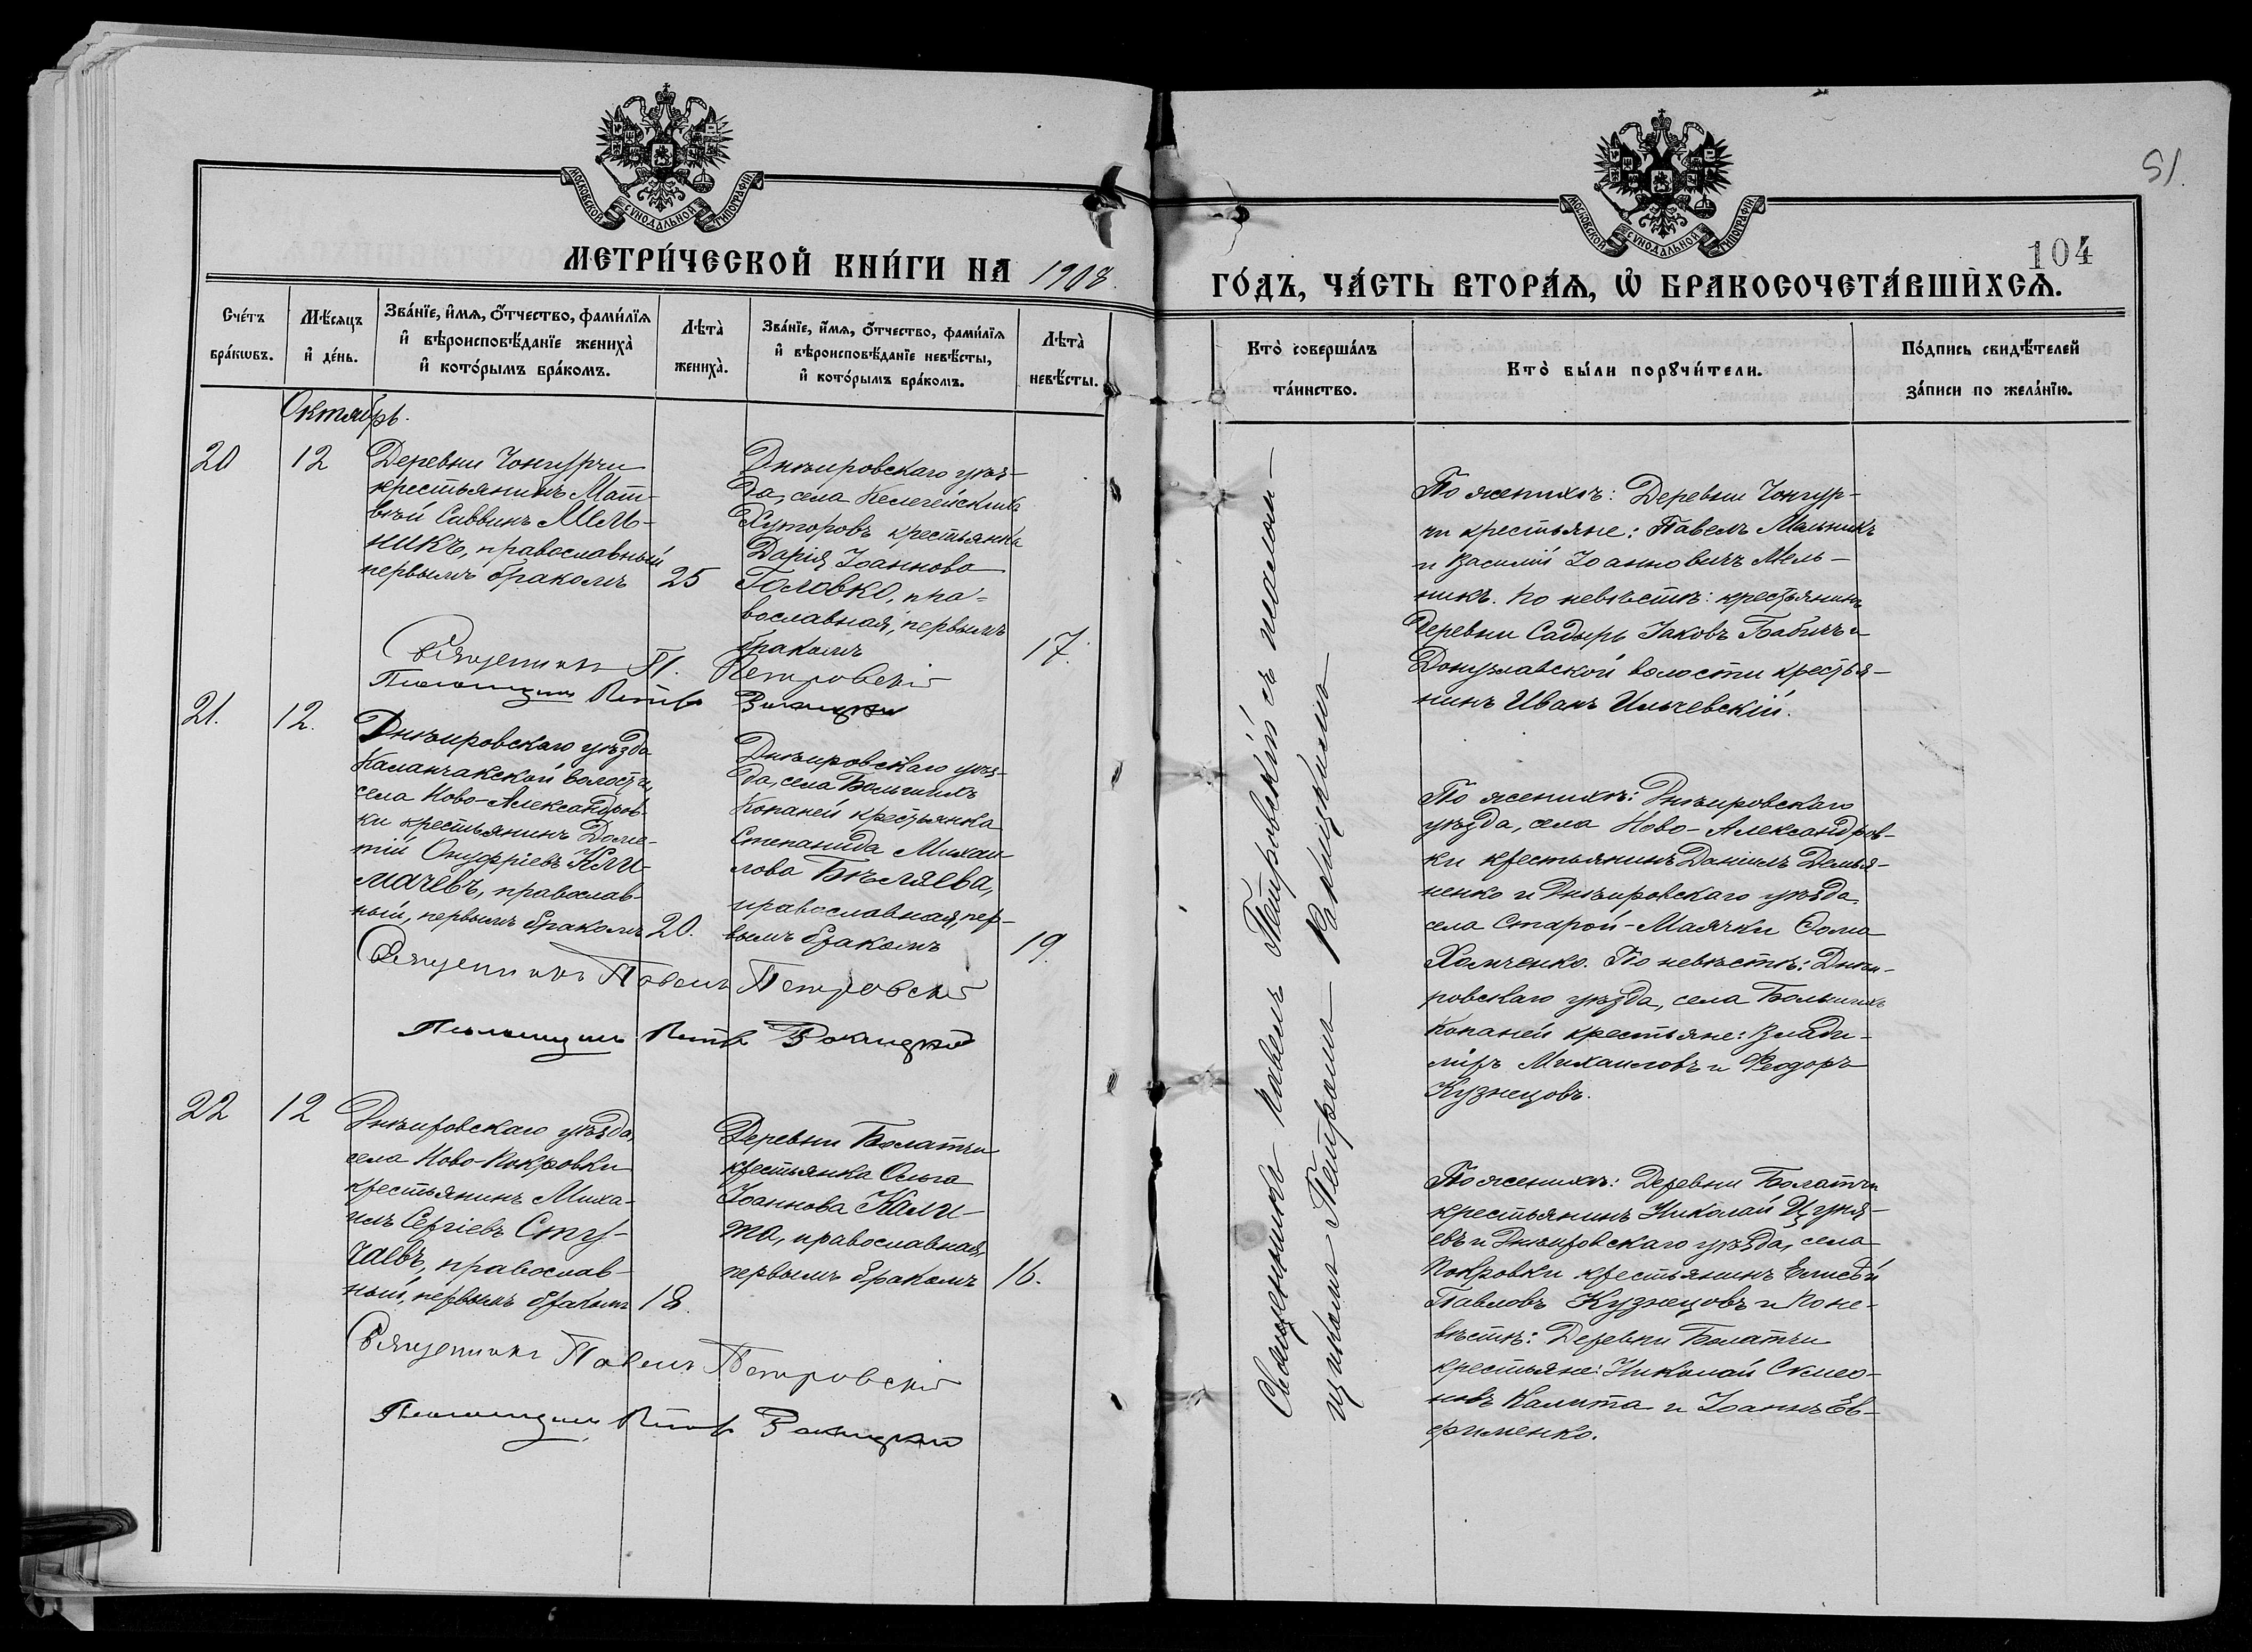 МОСКОВСКОЙ СѴНОДАЛЬНОЙ ТИПОГРАФІИ
МЕТРИ́ЧЕСКОЙ КНИ́ГИ НА 1908.
Сче́тъ бра́кѡвъ.
Мѣ́сяцъ и҆ де́нь.
Зва́нїе, и҆́мѧ, ѻ҆́тчество, фами́лїѧ
и҆ вѣроисповѣ́данїе жениха̀
и҆ кото́рымъ бра́комъ.
Лѣта̀ жениха̀.
Зва́нїе, и҆́мѧ, ѻ҆́тчество, фами́лїѧ
и҆ вѣроисповѣ́данїе невѣ́сты,
и҆ кото́рымъ бра́комъ.
Лѣта̀ невѣ́сты.
Октябрь.
20
12
Деревни Чонгурчи
крестьянинъ Мат-
вѣй Саввинъ Мель-
никъ, православный
первымъ бракомъ
25
Днѣпровскаго уѣз-
да, села Келегейскихъ
Хуторовъ крестьянка
Дарія Іоаннова
Головко, пра-
вославная, первымъ
бракомъ
17.
Священникъ П. Петровскій
Псаломщикъ Петръ Ракицкій
21.
12.
Днѣпровскаго уѣзда
Каланчакской волости,
села Ново-Александров-
ки крестьянинъ Доме-
тій Онуфріевъ Кли-
мачевъ, православ-
ный, первымъ бракомъ
20.
Днѣпровскаго уѣз-
да, села Большихъ
Копаней крестьянка
Степанида Михаи-
лова Бѣляева,
православная, пер-
вымъ бракомъ
19.
Священникъ Павелъ Петровскій
Псаломщикъ Петръ Ракицкій
22
12
Днѣпровскаго уѣзда,
села Ново-Покровки
крестьянинъ Миха-
илъ Сергіевъ Сту-
чаевъ, православ-
ный, первымъ бракомъ
18.
Деревни Болатчи
крестьянка Ольга
Іоаннова Кали-
та, православная,
первымъ бракомъ
16.
Священникъ Павелъ Петровскій
Псаломщикъ Петръ Ракицкій
51.
104
МОСКОВСКОЙ СѴНОДАЛЬНОЙ ТИПОГРАФІИ
ГО́ДЪ, ЧА́СТЬ ВТОРА́Ѧ, Ѽ БРАКОСОЧЕТА́ВШИХСѦ.
Кто̀ соверша́лъ
та́инство.
Кто̀ бы́ли порꙋчи́тели.
По́дпись свидѣ́телей
за́писи по жела́нїю.
Священникъ Павелъ Петровскій съ псалом-
щикомъ Петромъ Ракицкимъ
По женихѣ: Деревни Чонгур-
чи крестьяне: Павелъ Мельникъ
и Василій Іоанновичъ Мель-
никъ. По невѣстѣ: крестьянинъ
Деревни Садыръ Іаковъ Бабичъ и
Донузлавской волости крестья-
нинъ Иванъ Ильчевскій.
По женихѣ: Днѣпровскаго
уѣзда, села Ново-Александров-
ки крестьянинъ Даніилъ Демья-
ненко и Днѣпровскаго уѣзда
села Старой-Маячки Ѳома
Хомченко. По невѣстѣ: Днѣп-
ровскаго уѣзда, села Большихъ
Копаней крестьяне: Влади-
міръ Михаиловъ и Феодоръ
Кузнецовъ.
По женихѣ: Деревни Болатчи
крестьянинъ Николай Цуня-
евъ и Днѣпровскаго уѣзда, села
Покровки крестьянинъ Елисѣй
Павловъ Кузнецовъ и по не-
вѣстѣ: Деревни Болатчи
крестьяне: Николай Симео-
новъ Калита и Іоаннъ Ев-
фименко.